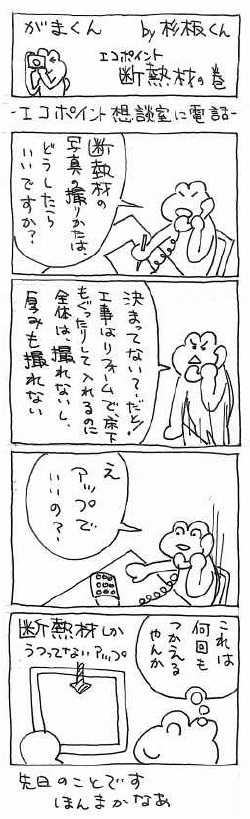 がまくん
by 杉板くん
エコポイント
断熱材の巻
-エコポイント想談室に電話-
断熱材の
写真の撮りかたは、
どうしたら
いいですか？
決まってないて～だと!
工事はリフォームで、床下
もぐったりして入れるのに
全体は、撮れないし、
厚みも撮れない
え
アップで
いいの？
これは
何回も
つかえる
やんか
断熱材しか
うつってないアップ。
先日のことです
ほんまかなあ